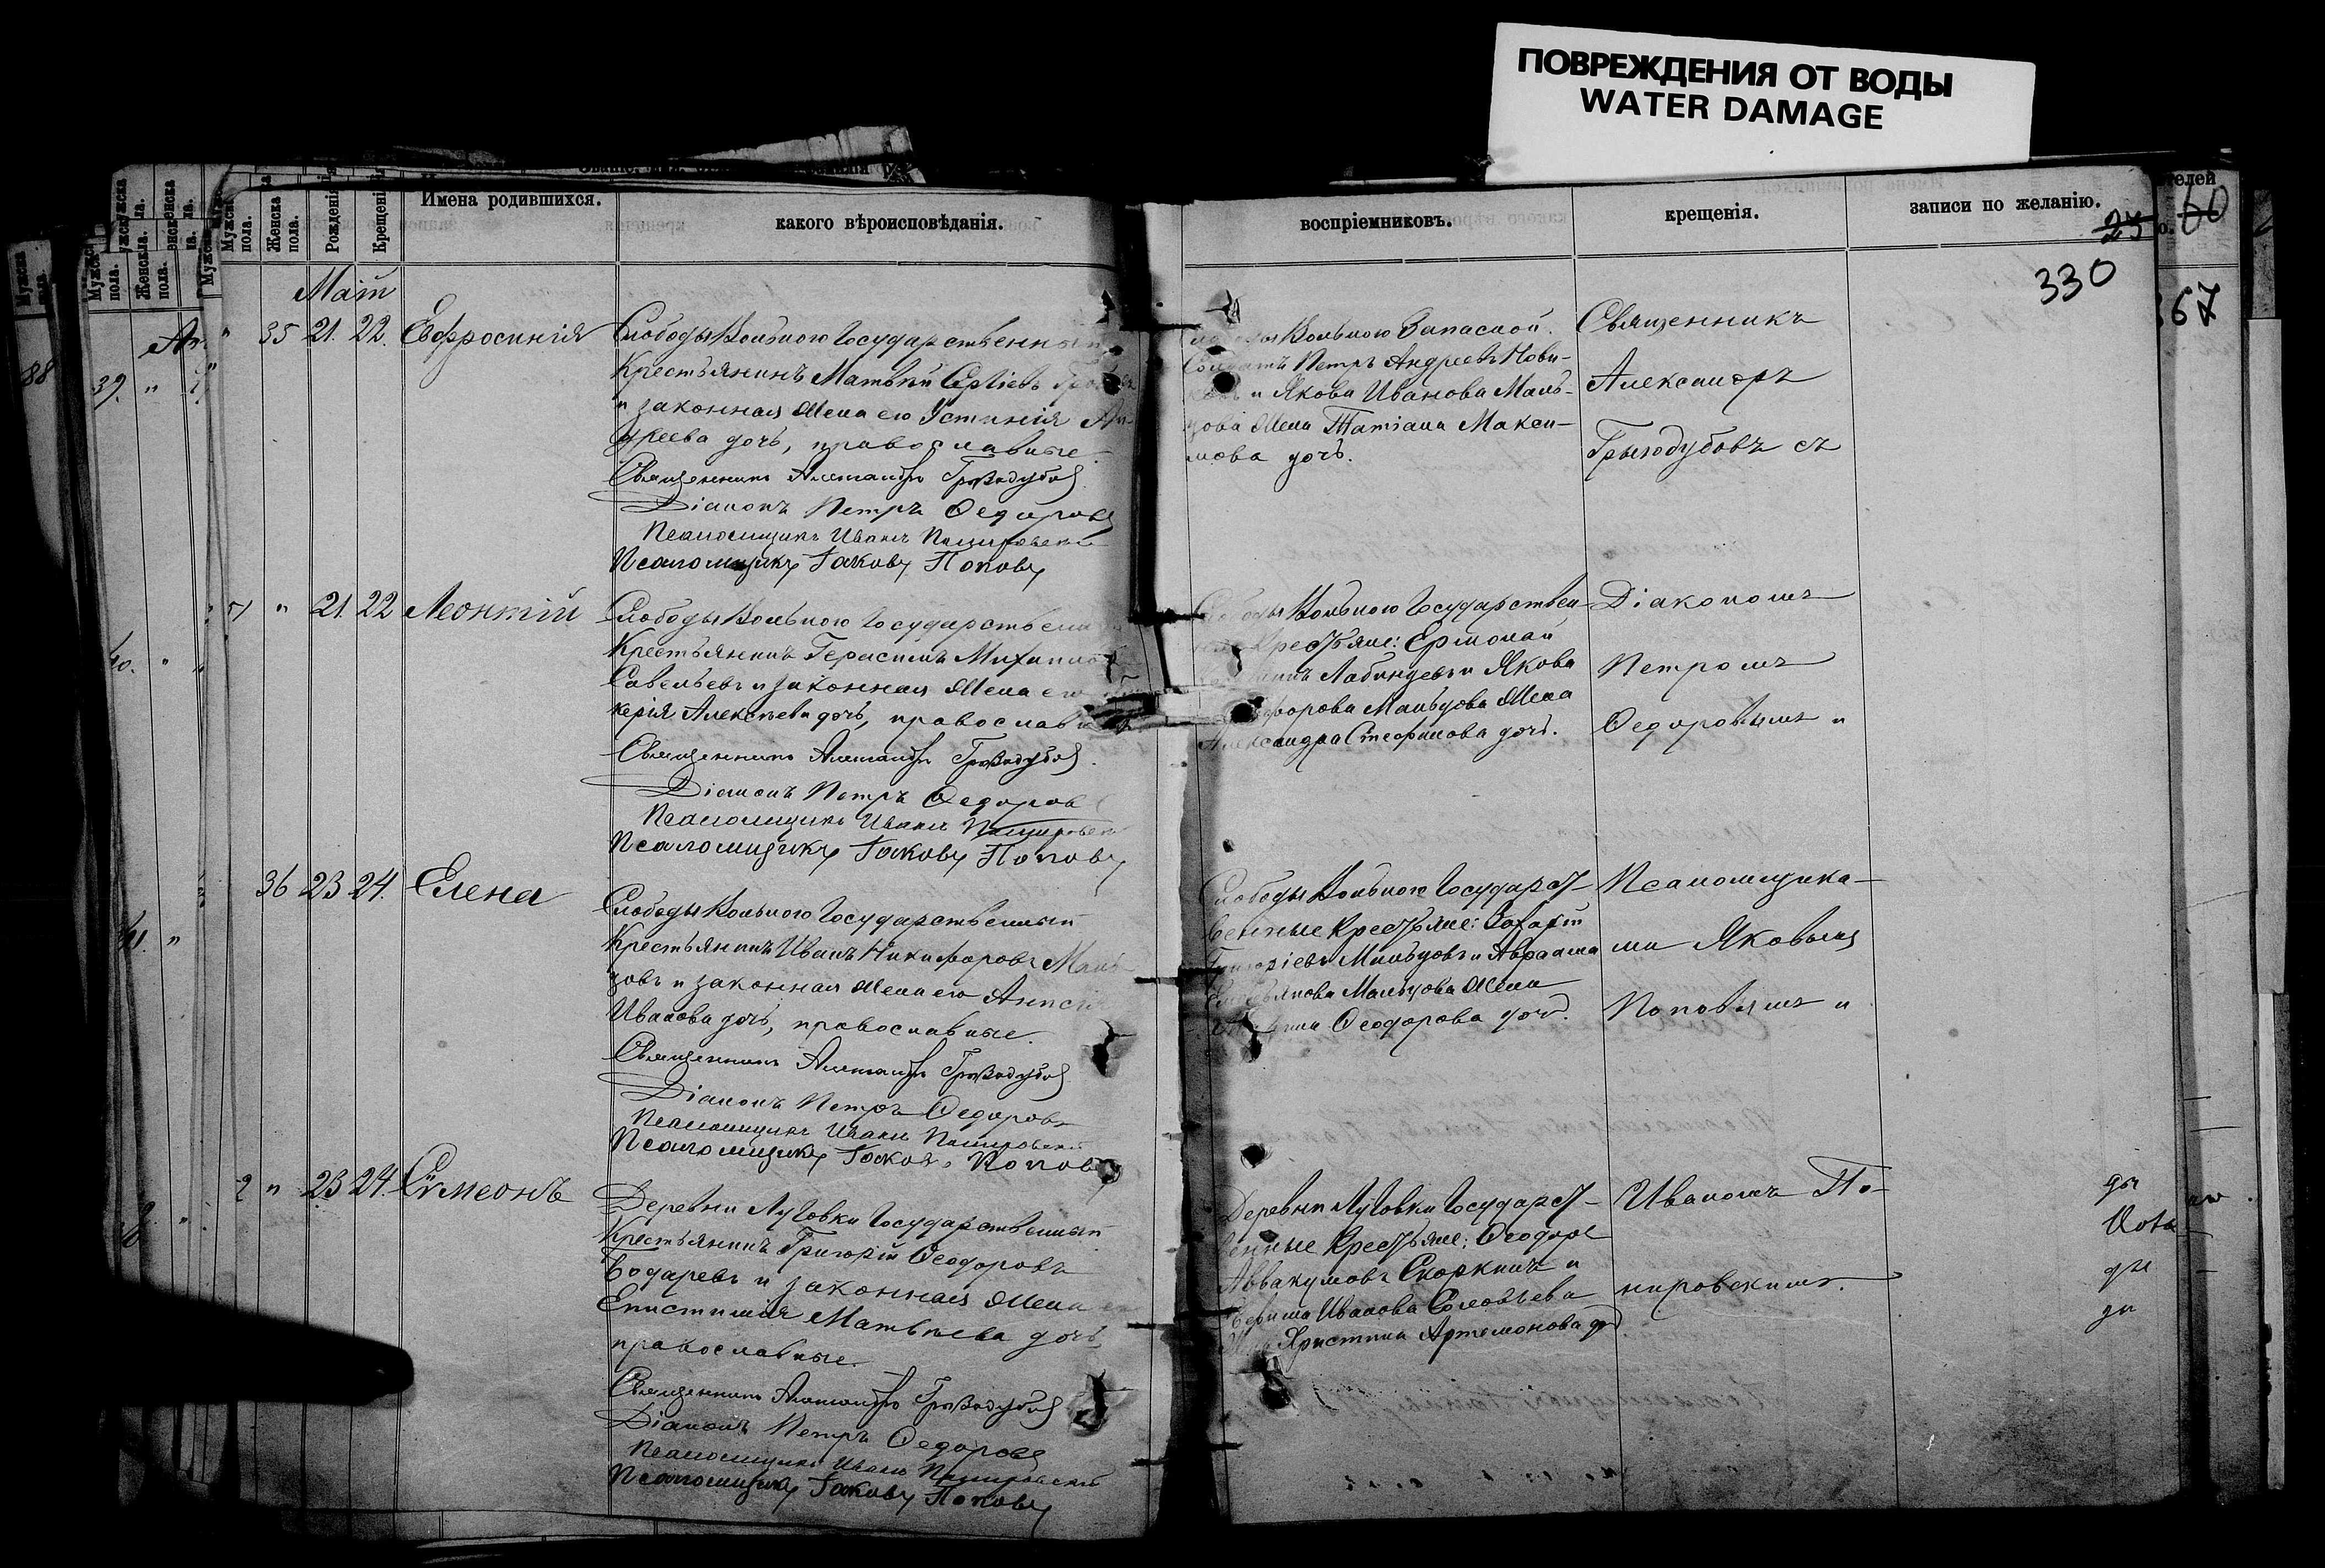 ПОВРЕЖДЕНИЯ ОТ ВОДЫ
WATER DAMAGE
Мужска пола.
Женска пола.
Рожденія
Крещенія
Имена родившихся.
какого вѣроисповѣданія.
воспріемниковъ.
крещенія.
записи по желанію.
телей
25
60
330
67
Май
35 21. 22. Евфросинія
Слободы Вольного Государственный
Крестьянинъ Матвѣй Сергіевъ
и законная жена его Устинія Ан-
дреева дочь, православные.
Священникъ Александръ Грызодубовъ
Діаконъ Петръ Ѳедоровъ
Псаломщикъ Иванъ Покировскій
Псаломщикъ Іаковъ Поповъ
Слободы Вольного Запасной
Солдатъ Петръ Андреевъ Нови-
ковъ и Якова Иванова Маль-
цова жена Татіана Макси-
мова дочь.
Священникъ
Александръ
Грызодубовъ съ
" 21. 22 Леонтій
Слободы Вольного Государственный
Крестьянинъ Герасимъ Михаиловъ
Савельевъ и законная жена его
керія Алексѣева дочь, православные
Священникъ Александръ Грызодубовъ.
Діаконъ Петръ Ѳедоровъ
Псаломщикъ Иванъ Покировскій
Псаломщикъ Іаковъ Поповъ
Слободы Вольного Государствен-
ные Крестьяне: Ермолай
Лабинцевъ и Якова
форова Мальцова жена
Александра Стефанова дочь.
Діакономъ
Петромъ
Ѳедоровымъ и
36 23 24. Елена
Слободы Вольного Государственный
Крестьянинъ Иванъ Никифоровъ Маль-
цовъ и законная жена его Анисія
Иванова дочь, православные.
Священникъ Александръ Грызодубовъ
Діаконъ Петръ Ѳедоровъ
Псаломщикъ Иванъ Покировскій
Псаломщикъ Іаковъ Поповъ
Слободы Вольного Государст-
венные Крестьяне: Захарій
Григоріевъ Мальцовъ и Авраама
Мальцова жена
Ѳеодорова дочь.
Псаломщика-
ми Яковымъ
Поповымъ и
2 " 23 24. Сѵмеонъ
Деревни Луговки Государственный
Крестьянинъ Григорій Ѳеодоровъ
Бодаревъ и законная жена его
Епистимія Матвѣева дочь,
православные.
Священникъ Александръ Грызодубовъ
Діаконъ Петръ Ѳедоровъ
Псаломщикъ Иванъ Покировскій
Псаломщикъ Іаковъ Поповъ
Деревни Луговки Государст-
венные Крестьяне: Ѳеодоръ
Аввакумовъ Скоркинъ и
Ефима Иванова Соловьева
жена Христина Артемонова дочь
Иваномъ По-
кировскимъ.